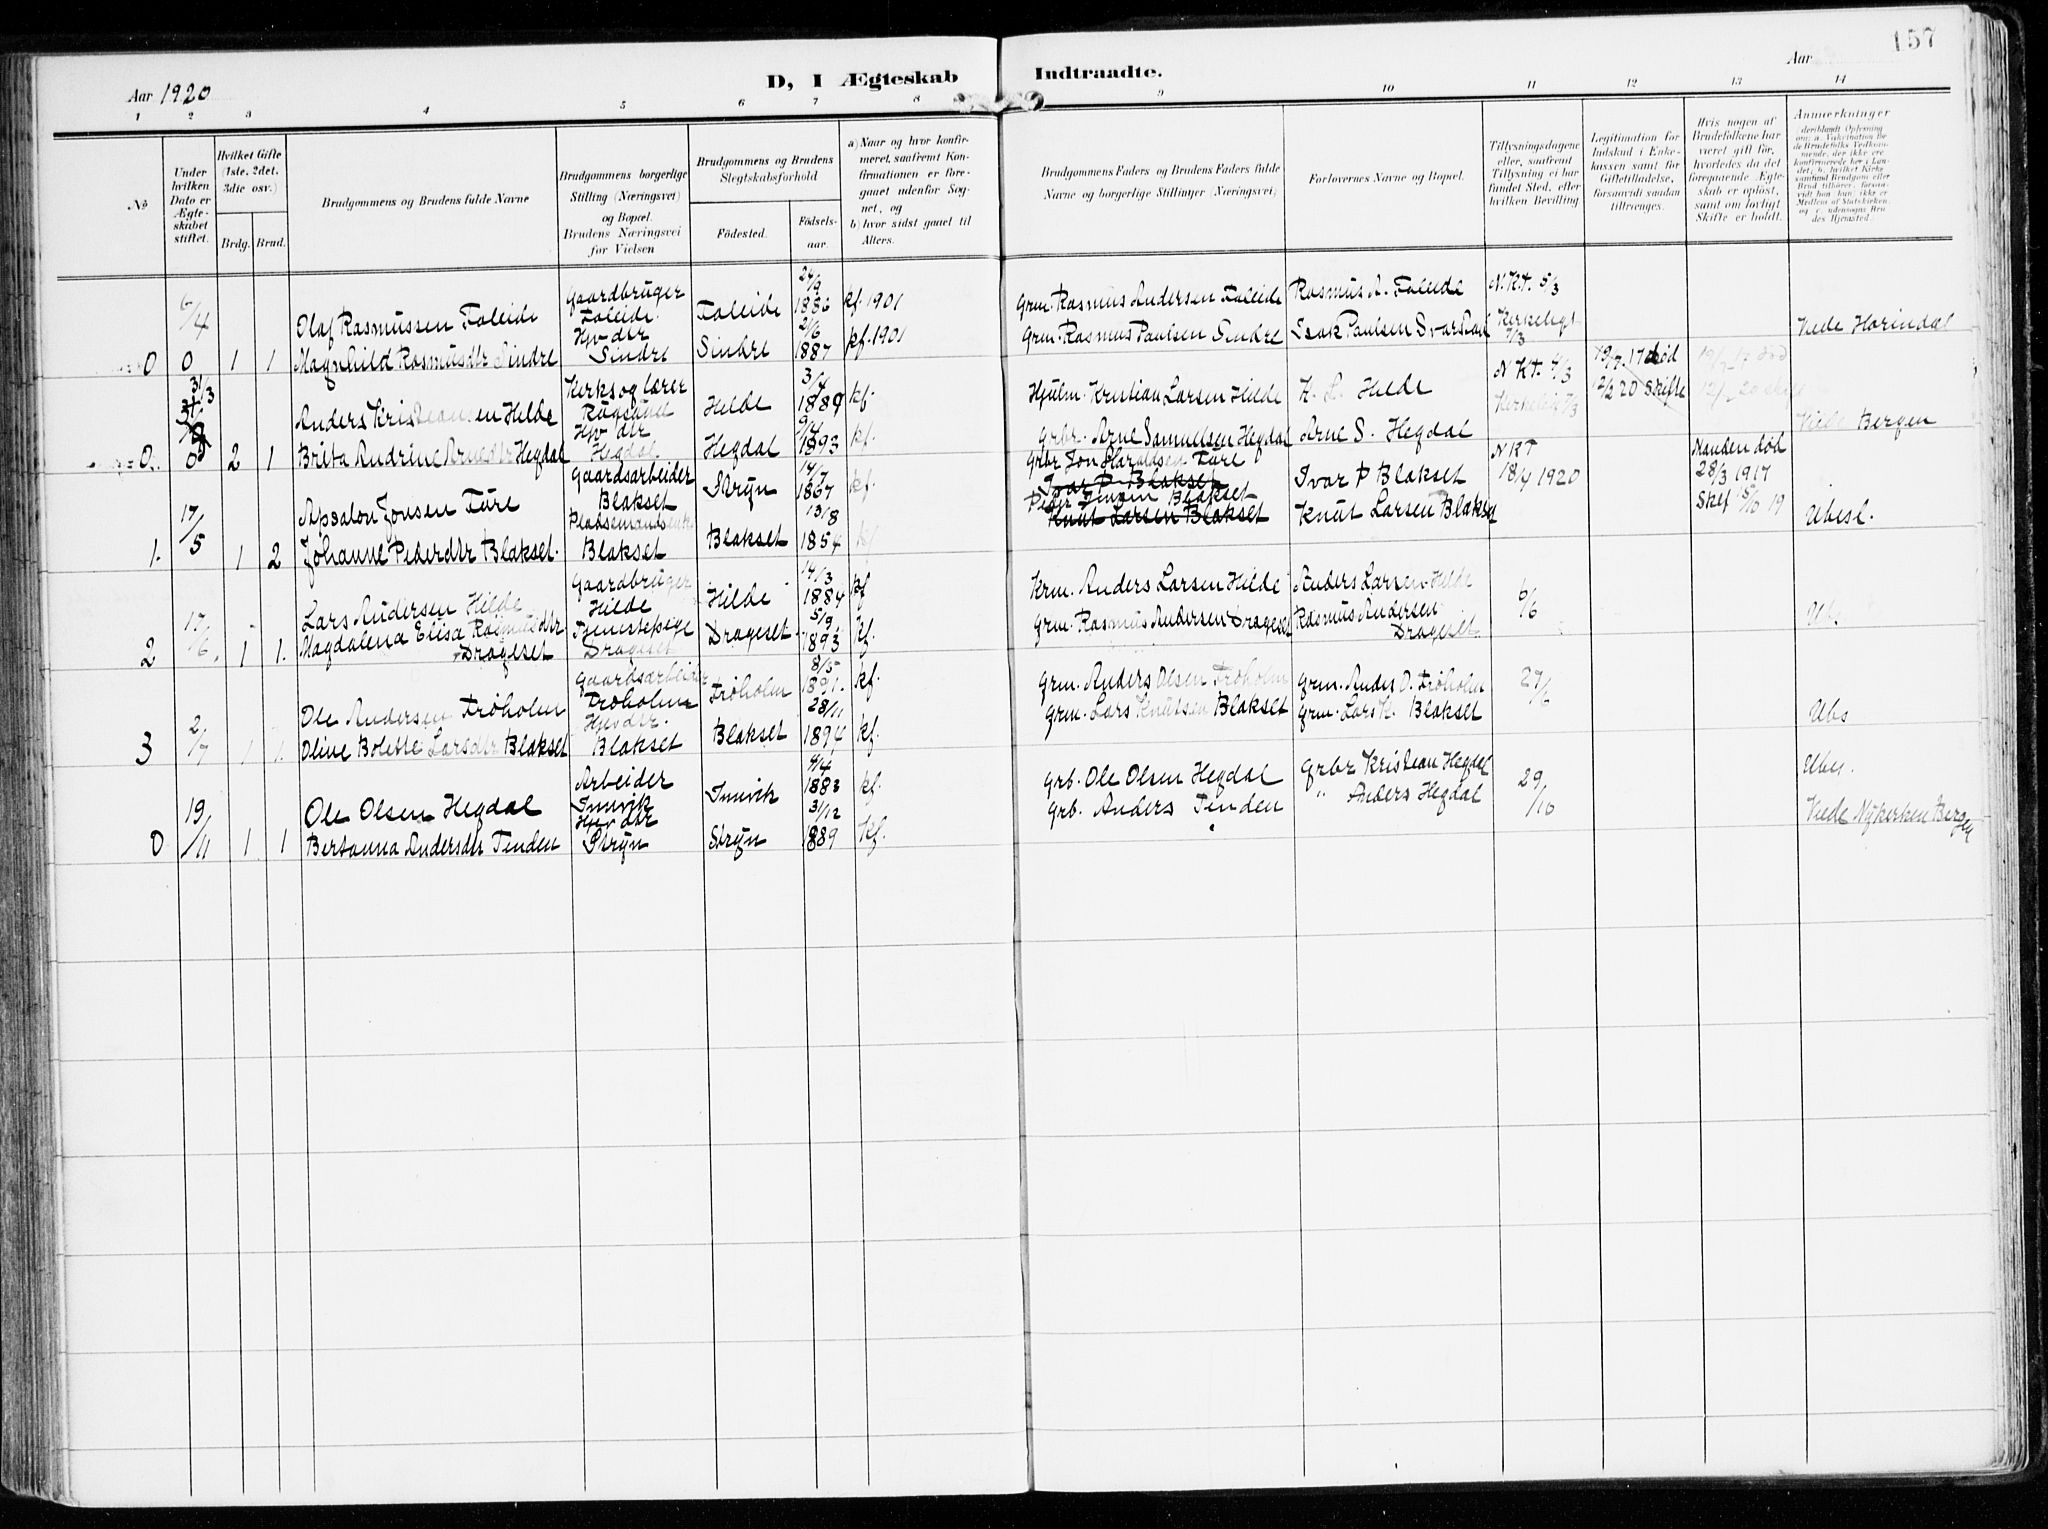 157
D, I Ægteskab Indtraadte.
Aar 1920
Aar
1 2 3 4 5 6 7 8 9 10 11 12 13 14
No
Under hvilken Dato er Ægteskabet stiftet.
Hvilket Gifte (1ste, 2det, 3die osv.)
Brdg. Brud.
Brudgommens og Brudens fulde Navne
Brudgommens borgerlige Stilling (Næringsvei) og Bopæl. Brudens Næringsvei før Vielsen
Brudgommens og Brudens Slegtskabsforhold
Födested.
Födselsaar.
a) Naar og hvor konfirmeret, saafremt Konfirmationen er foregaaet udenfor Sognet, og
b) hvor sidst gaaet til Alters.
Brudgommens Faders og Brudens Faders fulde Navne og borgerlige Stillinger (Næringsvei)
Forlovernes Navne og Bopæl.
Tillysningsdagene eller, saafremt Tillysning ei har fundet Sted, efter hvilken Bevilling.
Legitimation for Indskud i Enkekassen samt for Giftetilladelse, forsaavidt saadan tiltrænges.
Hvis nogen af Brudefolkene har været gift før, hvorledes da det forepaaende Ægteskab er opløst, samt om lovligt Skifte er holdt.
Anmerkninger
0 6/4 0 1 1
Olaf Rasmussen Foleide
Magnhild Rasmusdtr Sindre
Gaardbruger Foleide
Hjv dtr Sindre
Foleide 24/9 1886 kf. 1901
Sindre 2/6 1887 kf. 1901
Grm. Rasmus Andersen Foleide
Grm. Rasmus Paulsen Sindre
Rasmus A. Foleide
Isak Paulsen Svarstad
N.K.t. 5/3
Kirkeligt 7/3
Viede Horindal
0. 31/3 0 2 1
Anders Kristiansen Hilde
Brita Andrine Arnedtr Hegdal
Kirkesoglærer
Hjv dtr Hegdal
Hilde 3/4 1889 kf.
Hegdal 9/4 1893 kf.
Hjulm. Kristian Larsen Hilde
Grbr. Arne Samuelsen Hegdal
K. L. Hilde
Arne S. Hegdal
N Kt. 4/3
Kirkelig 7/3
19/7 17 død
12/2 20 Skifte
19/7 17 død
12/2 20 skifte
Viede Bergen
1. 17/5 1 2
Apsalon Jonsen Fure
Johanne Pederdtr Blakset.
Gaardsarbeider Blakset
Pladsemandsenke Blakset
Stryn 14/7 1867 kf.
Blakset 13/8 1854 kf
Grbr Jon Haraldsen Fure
Ivar P. Blakset
Peder Jensen Blakset
Knut Larsen Blakset
Ivar P Blakset
Knut Larsen Blakset
N K T
18/4 1920
Manden død
28/3 1917
Skif 15/10 19
Ubesl.
2 17/6. 1 1.
Lars Andersen Hilde
Magdalena Elisa Rasmusdtr Drageset
Gaardbruger Hilde
Tjenestepige Drageset
Hilde 14/3 1884 kf
Drageset 5/9 1893 kf.
Krm. Anders Larsen Hilde
Grm. Rasmus Andersen Drageset
Anders Larsen Hilde
Rasmus Andersen Drageset
6/6
Ub.
3 2/7 1 1.
Ole Andersen Frøholm
Oline Bolette Larsdtr Blakset
Gaardsarbeider Frøholm
Hjvdtr. Blakset
Frøholm 8/5 1891. kf.
Blakset 28/11 1894 kf.
Grm. Anders Olsen Frøholm
Grm. Lars Knutsen Blakset
Grm. Anders O. Frøholm
Grm. Lars K. Blakset
27/6
Ubs
0 19/11 1 1
Ole Olsen Hegdal
Bertanna Andersdtr Tenden
Arbeider Innvik
Hjv dtr Stryn
Innvik 4/4 1883 kf.
Stryn 31/12 1889 kf.
Grb. Ole Olsen Hegdal
Grb. Anders Tenden
Grbr Kristian Hegdal
" Anders Hegdal
29/10
Ubes.
Viede Nykirken Bergen